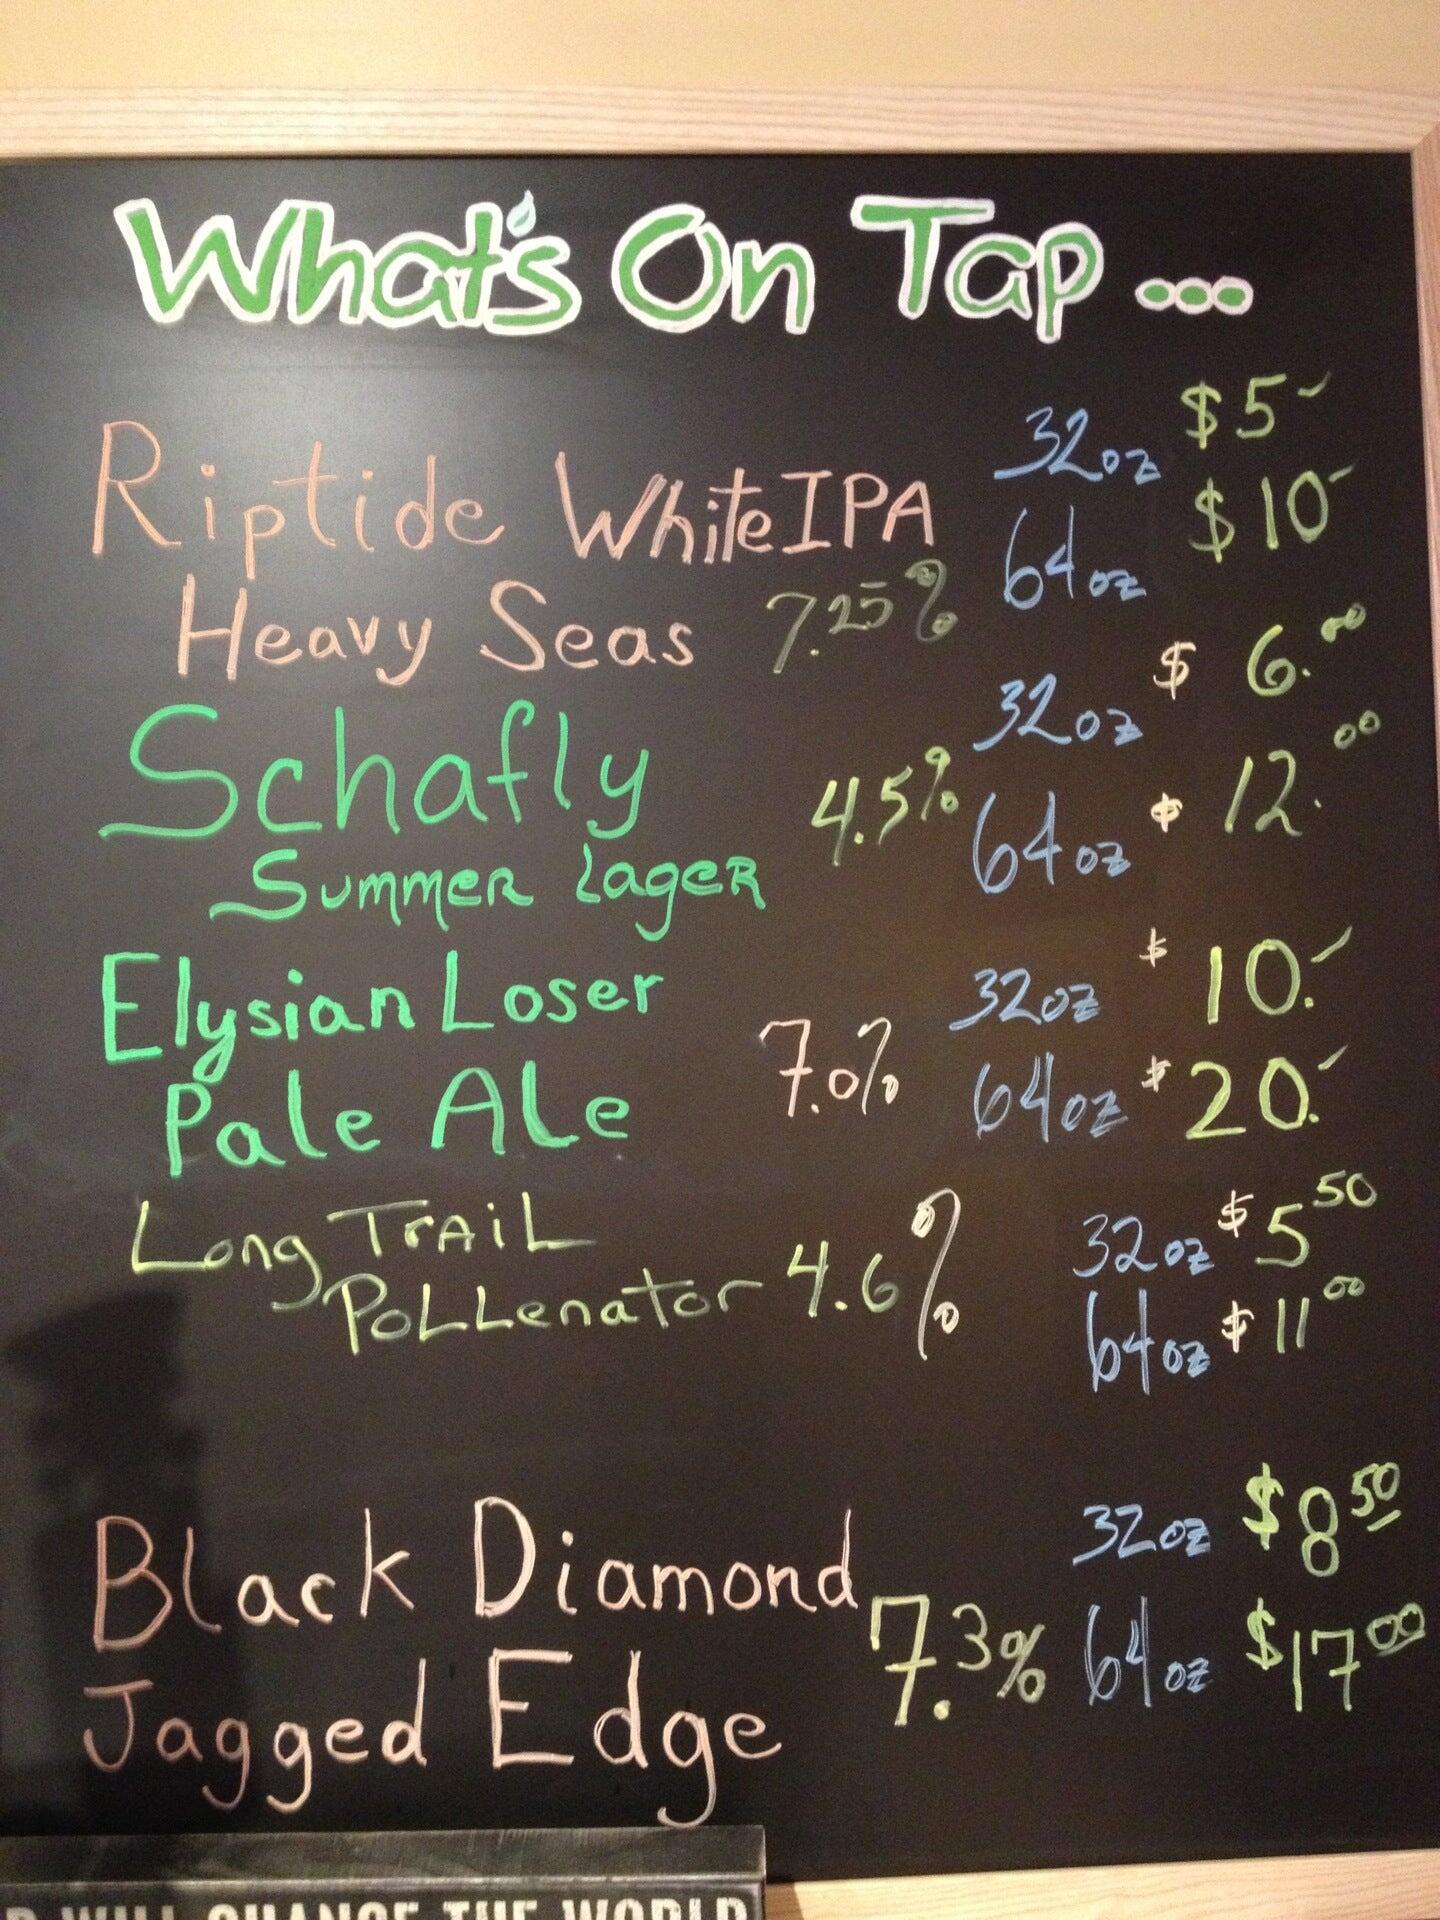 What's On Tap...
Riptide White IPA 32oz $5
64oz $10
Heavy Seas 7.25%
Schafly 32oz $6.00
4.5% 64oz $12.00
Summer Lager
Elysian Loser 32oz $10.
Pale Ale 7.0% 64oz $20.
Long Trail 32oz $5 50
Pollenator 4.6% 64oz $11 00
Black Diamond 32oz $8 50
7.3% 64oz $17 00
Jagged Edge
WILL CHANGE THE WORLD